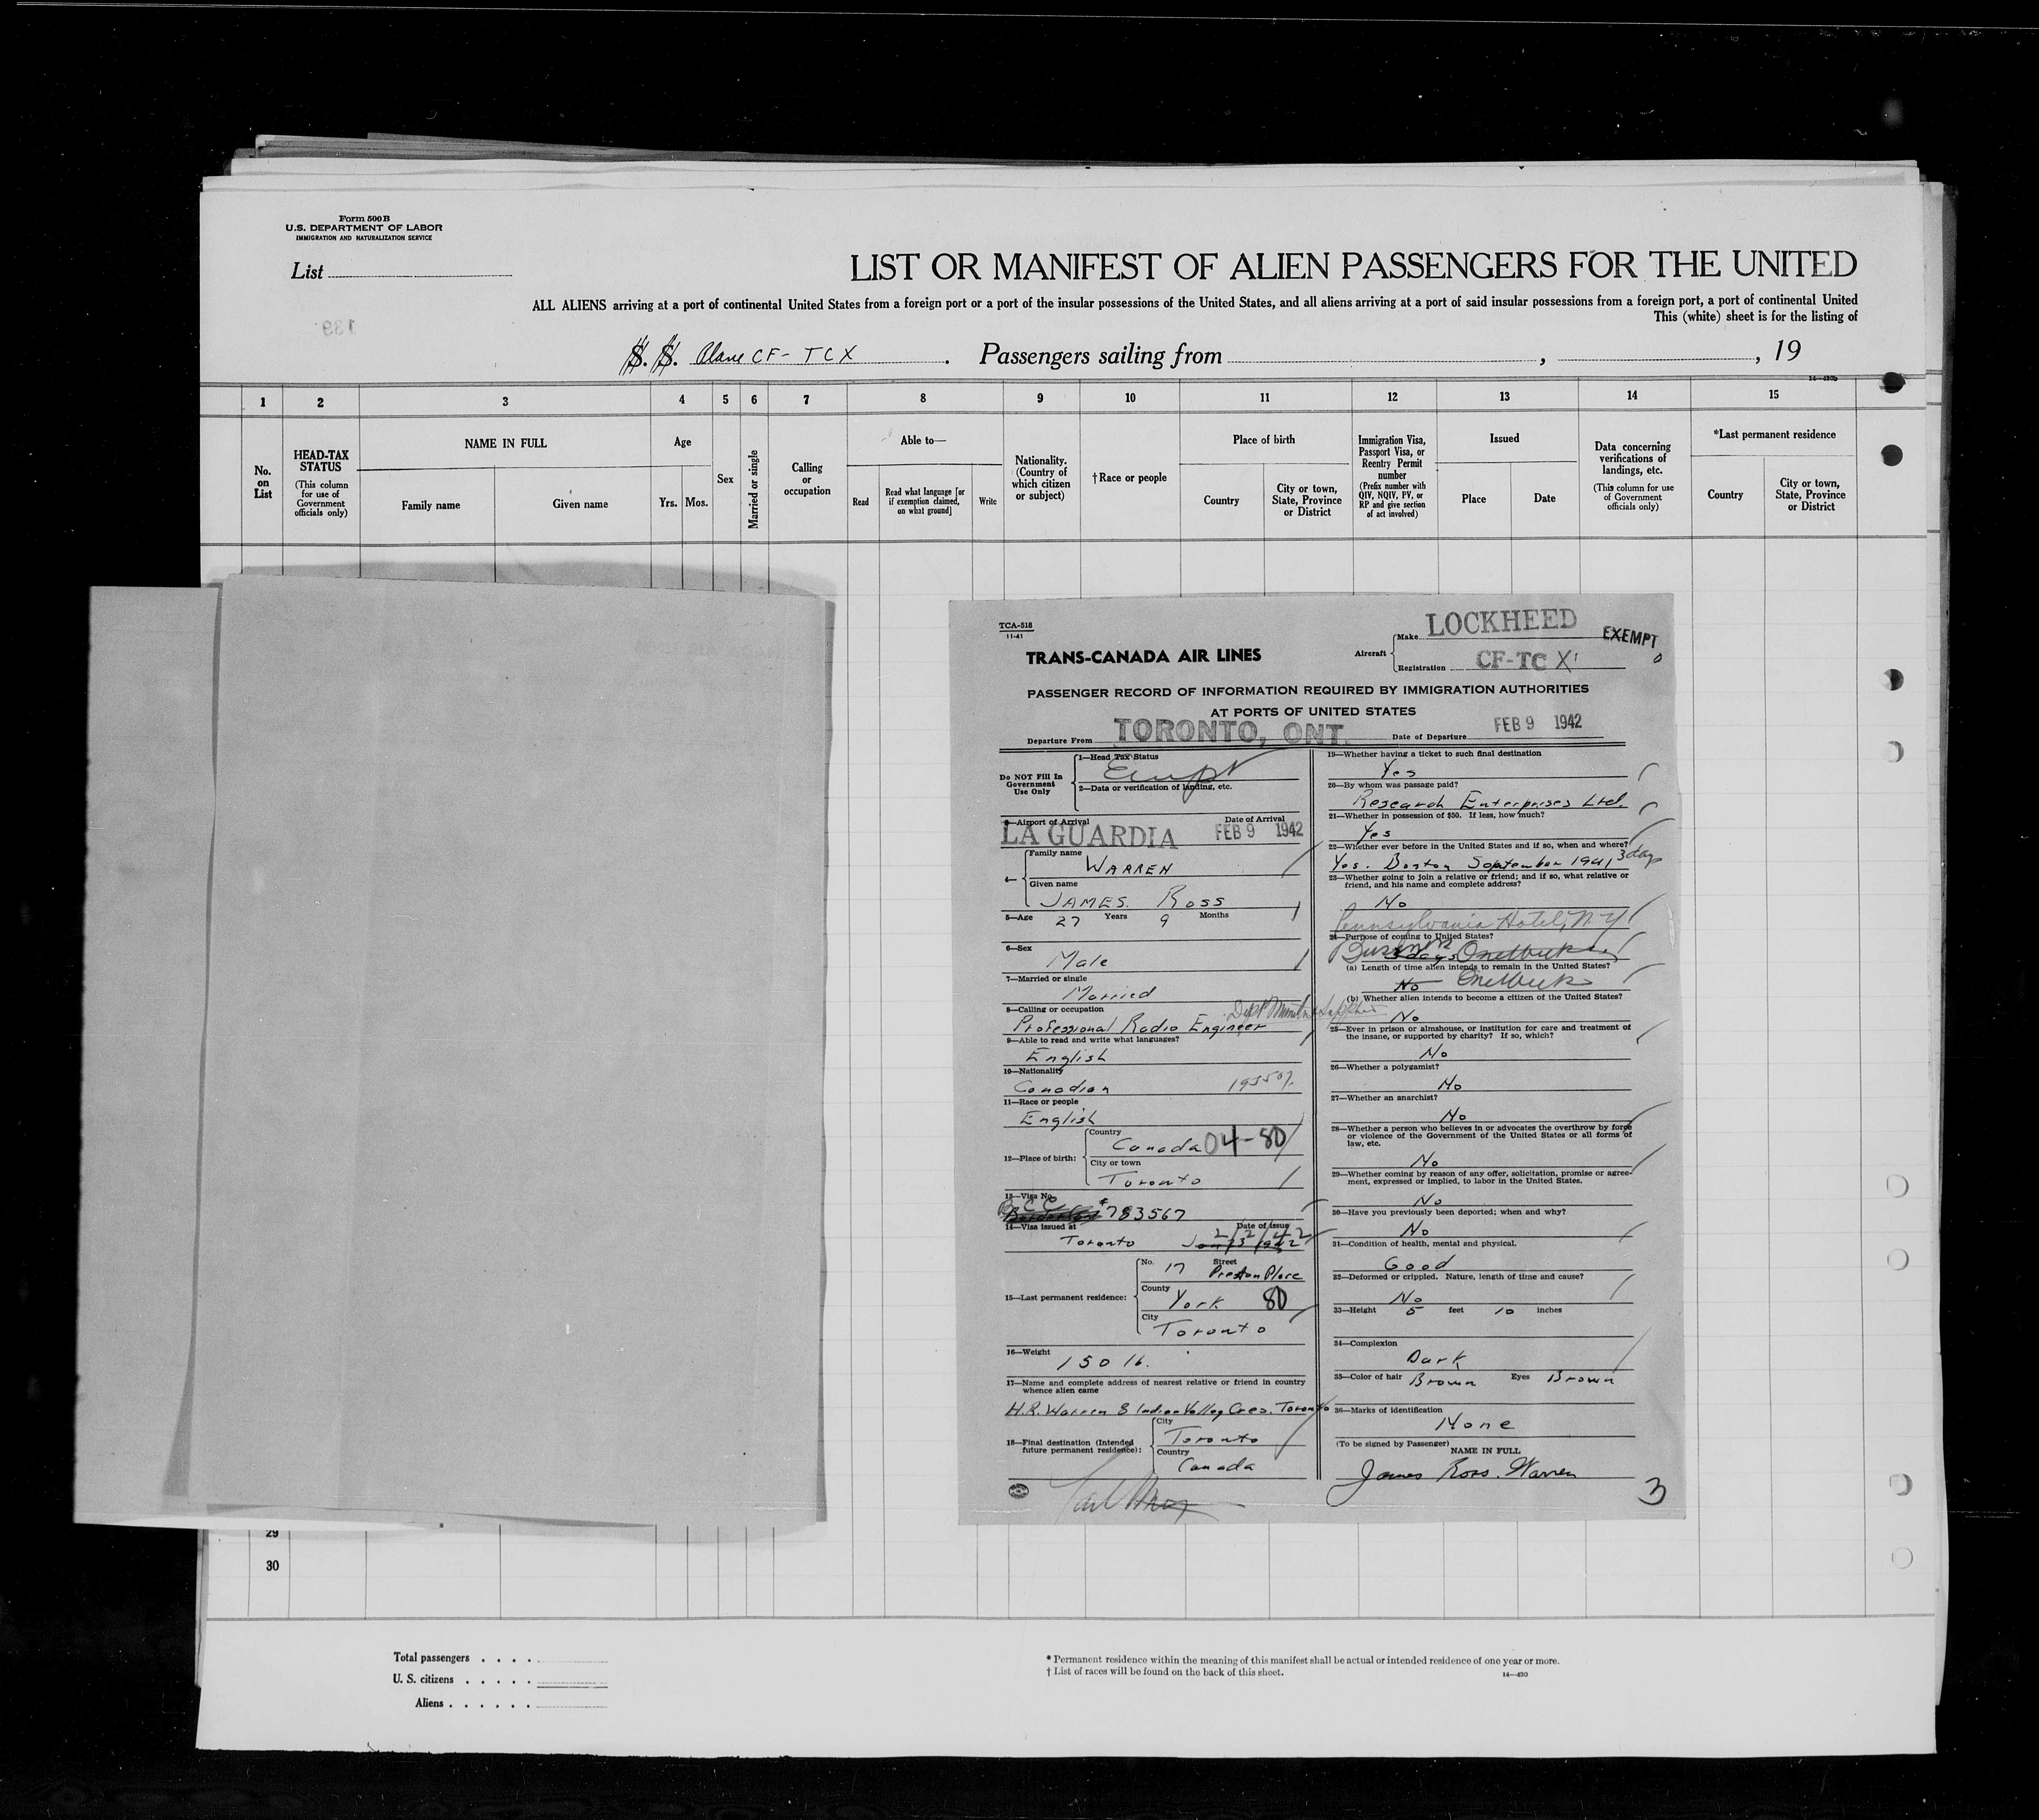 Form 500B
U.S. DEPARTMENT OF LABOR
IMMIGRATION AND NATURALIZATION SERVICE
List
LIST OR MANIFEST OF ALIEN PASSENGERS FOR THE UNITED
ALL ALIENS arriving at a port of continental United States from a foreign port or a port of the insular possessions of the United States, and all aliens arriving at a port of said insular possessions from a foreign port, a port of continental United
This (white) sheet is for the listing of
139
S. S. Plane CF-TCX . Passengers sailing from , , 19
14—430b
1 2 3 4 5 6 7 8 9 10 11 12 13 14 15
No. on List
HEAD-TAX STATUS (This column for use of Government officials only)
NAME IN FULL
Family name Given name
Age
Yrs. Mos.
Sex
Married or single
Calling or occupation
Able to—
Read Read what language [or if exemption claimed, on what ground] Write
Nationality. (Country of which citizen or subject)
†Race or people
Place of birth
Country City or town, State, Province or District
Immigration Visa, Passport Visa, or Reentry Permit number (Prefix number with QIV, NQIV, PV, or RP and give section of act involved)
Issued
Place Date
Data concerning verifications of landings, etc. (This column for use of Government officials only)
*Last permanent residence
Country City or town, State, Province or District
TCA-518
11-41
TRANS-CANADA AIR LINES
Aircraft Make LOCKHEED
Registration CF-TC X
EXEMPT
PASSENGER RECORD OF INFORMATION REQUIRED BY IMMIGRATION AUTHORITIES
AT PORTS OF UNITED STATES
Departure From TORONTO, ONT. Date of Departure FEB 9 1942
Do NOT Fill In Government Use Only
1—Head Tax Status
Exempt
2—Data or verification of landing, etc.
3—Airport of Arrival Date of Arrival
LA GUARDIA FEB 9 1942
4— Family name
WARREN
Given name
JAMES. ROSS
5—Age 27 Years 9 Months
6—Sex
Male
7—Married or single
Married
8—Calling or occupation
Professional Radio Engineer
9—Able to read and write what languages?
English
10—Nationality
Canadian
11—Race or people
English
12—Place of birth: Country
Canada 04-80
City or town
Toronto
13—Visa No.
B C C #783567
14—Visa issued at Date of issue
Toronto 2/2/42
15—Last permanent residence: No. 17 Street Preston Place
County
York 80
City
Toronto
16—Weight
150 lb.
17—Name and complete address of nearest relative or friend in country
whence alien came
H.R. Warren 8 Indian Valley Cres. Toronto
18—Final destination (Intended future permanent residence): City
Toronto
Country
Canada
19—Whether having a ticket to such final destination
Yes
20—By whom was passage paid?
Research Enterprises Ltd.
21—Whether in possession of $50. If less, how much?
Yes
22—Whether ever before in the United States and if so, when and where?
Yes. Boston September 1941 3 days
23—Whether going to join a relative or friend; and if so, what relative or
friend, and his name and complete address?
No
Pennsylvania Hotel, N Y
24—Purpose of coming to United States?
Business
(a) Length of time alien intends to remain in the United States?
No One Week
(b) Whether alien intends to become a citizen of the United States?
No
25—Ever in prison or almshouse, or institution for care and treatment of
the insane, or supported by charity? If so, which?
No
26—Whether a polygamist?
No
27—Whether an anarchist?
No
28—Whether a person who believes in or advocates the overthrow by force
or violence of the Government of the United States or all forms of
law, etc.
No
29—Whether coming by reason of any offer, solicitation, promise or agree-
ment, expressed or implied, to labor in the United States.
No
30—Have you previously been deported; when and why?
No
31—Condition of health, mental and physical.
Good
32—Deformed or crippled. Nature, length of time and cause?
No
33—Height 5 feet 10 inches
34—Complexion
Dark
35—Color of hair Brown Eyes Brown
36—Marks of identification
None
(To be signed by Passenger)
NAME IN FULL
James Ross. Warren
3
29
30
Total passengers . . . .
U. S. citizens . . . . .
Aliens . . . . . .
* Permanent residence within the meaning of this manifest shall be actual or intended residence of one year or more.
† List of races will be found on the back of this sheet.
14—430